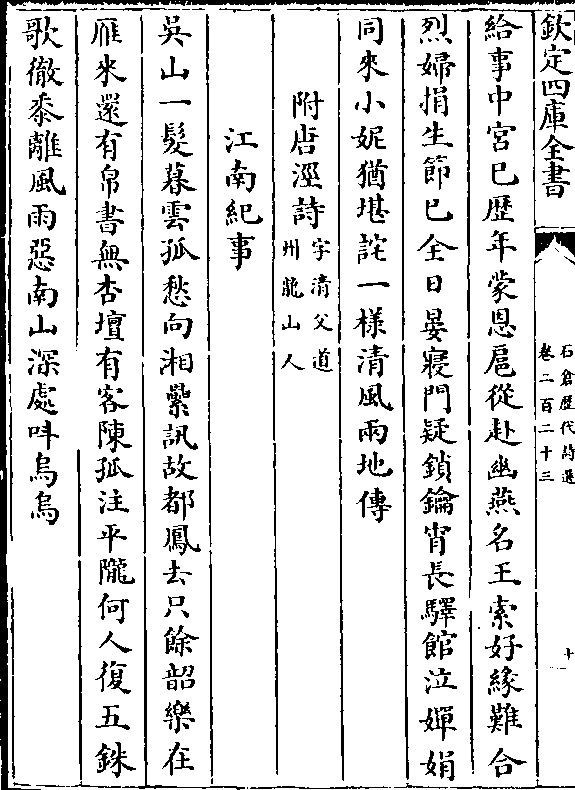 欽定四庫全書
石倉歷代詩選
卷二百二十三
十
給事中宮已歴年蒙恩扈從赴幽燕名王索好緣難合
烈婦捐生節已全日晏寢門疑鎖鑰宵長驛館泣嬋娟
同來小妮猶堪詫一様清風兩地傳
附唐涇詩
字清父道
州龍山人
江南紀事
吳山一髪暮雲孤愁向湘纍訊故都鳳去只餘韶樂在
雁來還有帛書無杏壇有客陳孤注平隴何人復五銖
歌徹黍離風雨惡南山深處呌烏烏